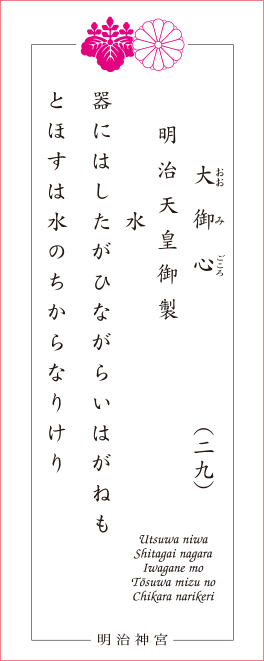 大御心
おおみごころ
（二九）
明治天皇御製
水
器にはしたがひながらいはがねも
とほすは水のちからなりけり
Utsuwa niwa
Shitagai nagara
Iwagane mo
Tōsuwa mizu no
Chikara narikeri
明治神宮